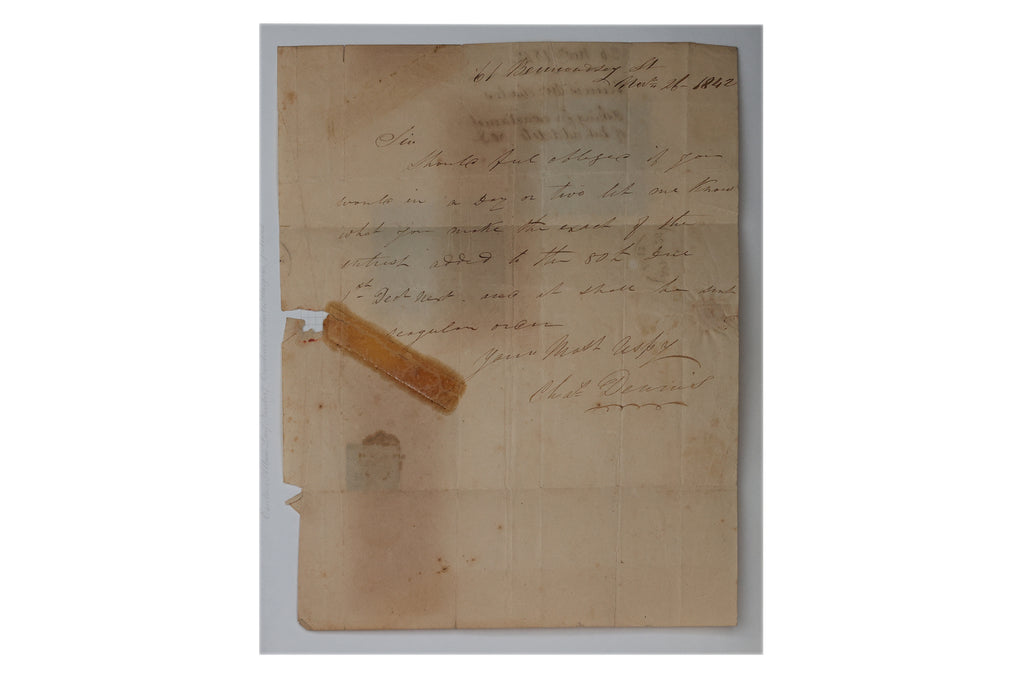 61 Bermondsey St
Novr 26 - 1842
Sir
Should feel obliged if you
would in a Day or two let me Know
what you make the exact of the
intrest added to the 80£ Due
1st Decr Next. and it shall be sent
regular order
Your Most Respy
Chas. Dennis